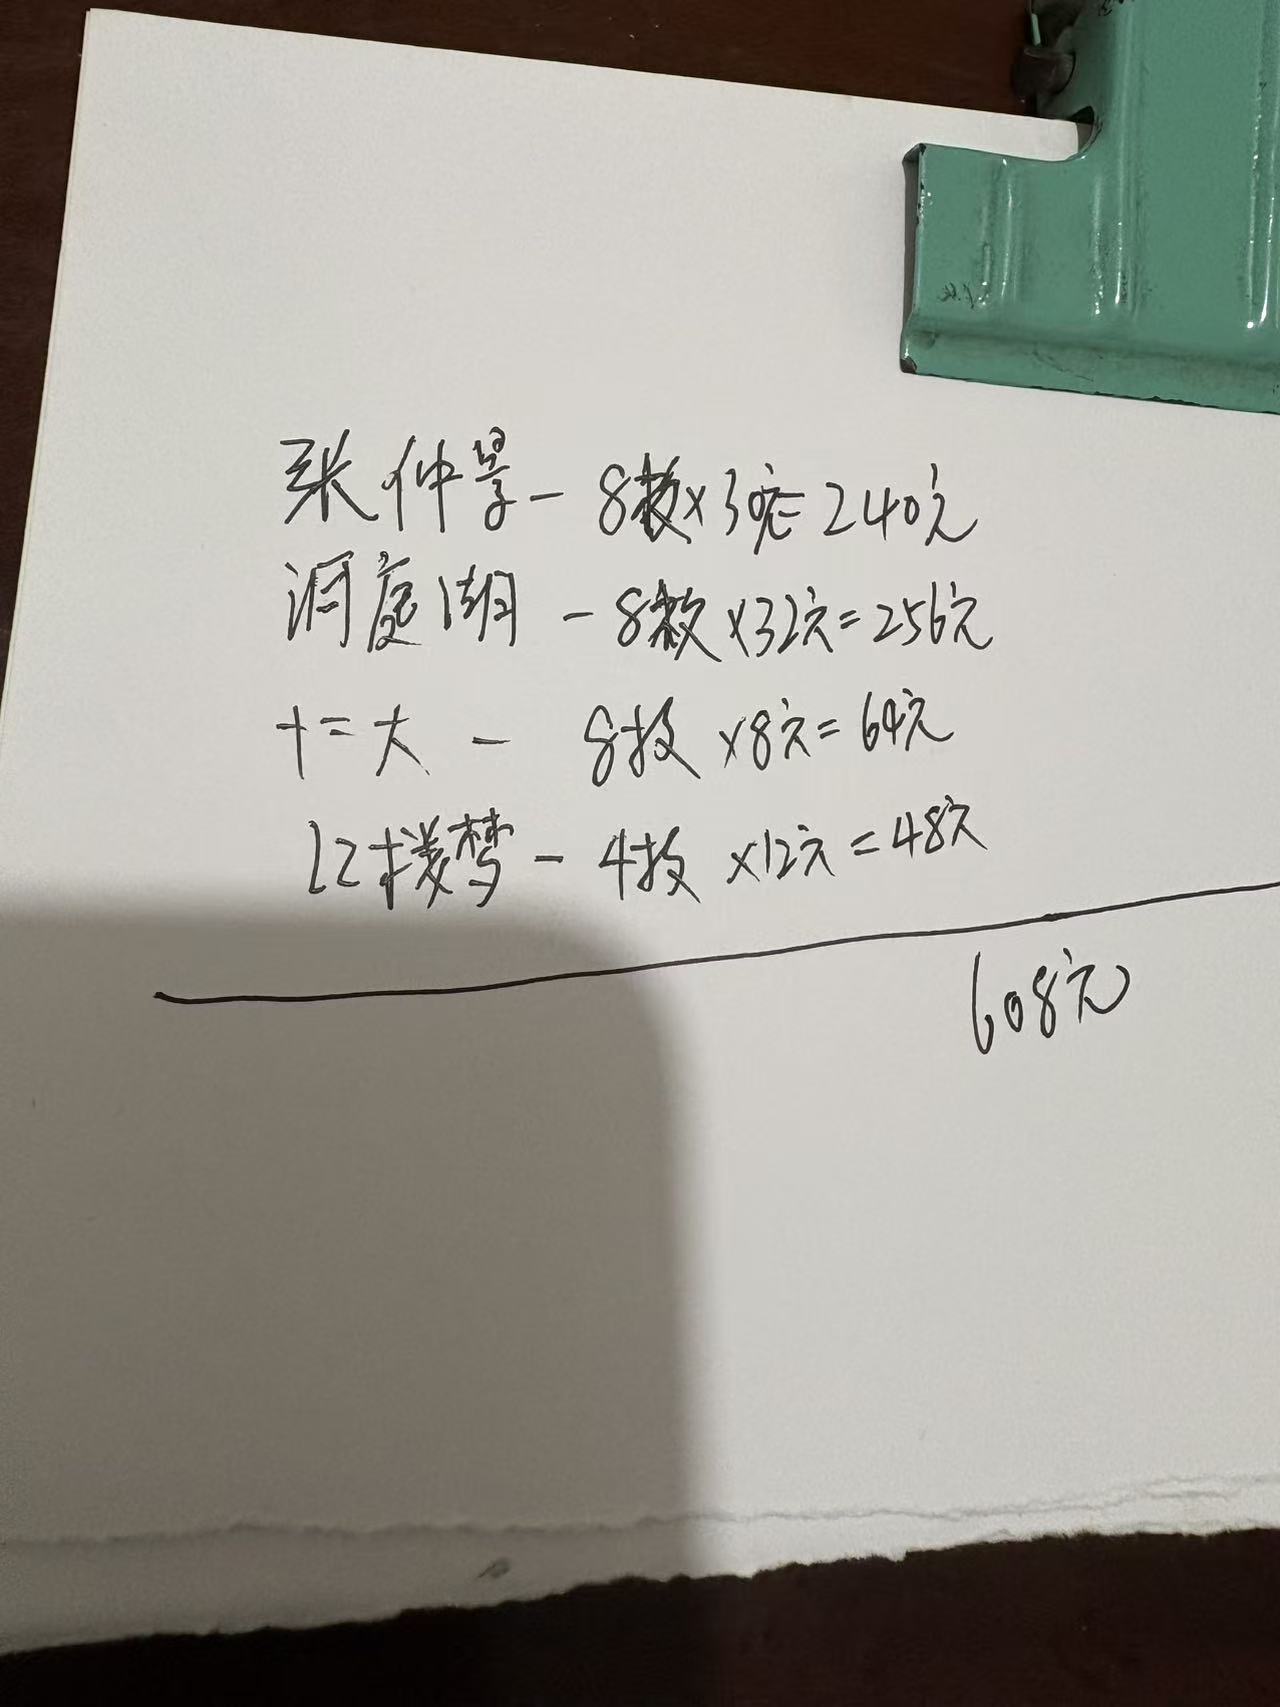 张仲景-8枚×30元=240元
洞庭湖-8枚×32元=256元
十二大-8枚×8元=64元
红楼梦-4枚×12元=48元
608元